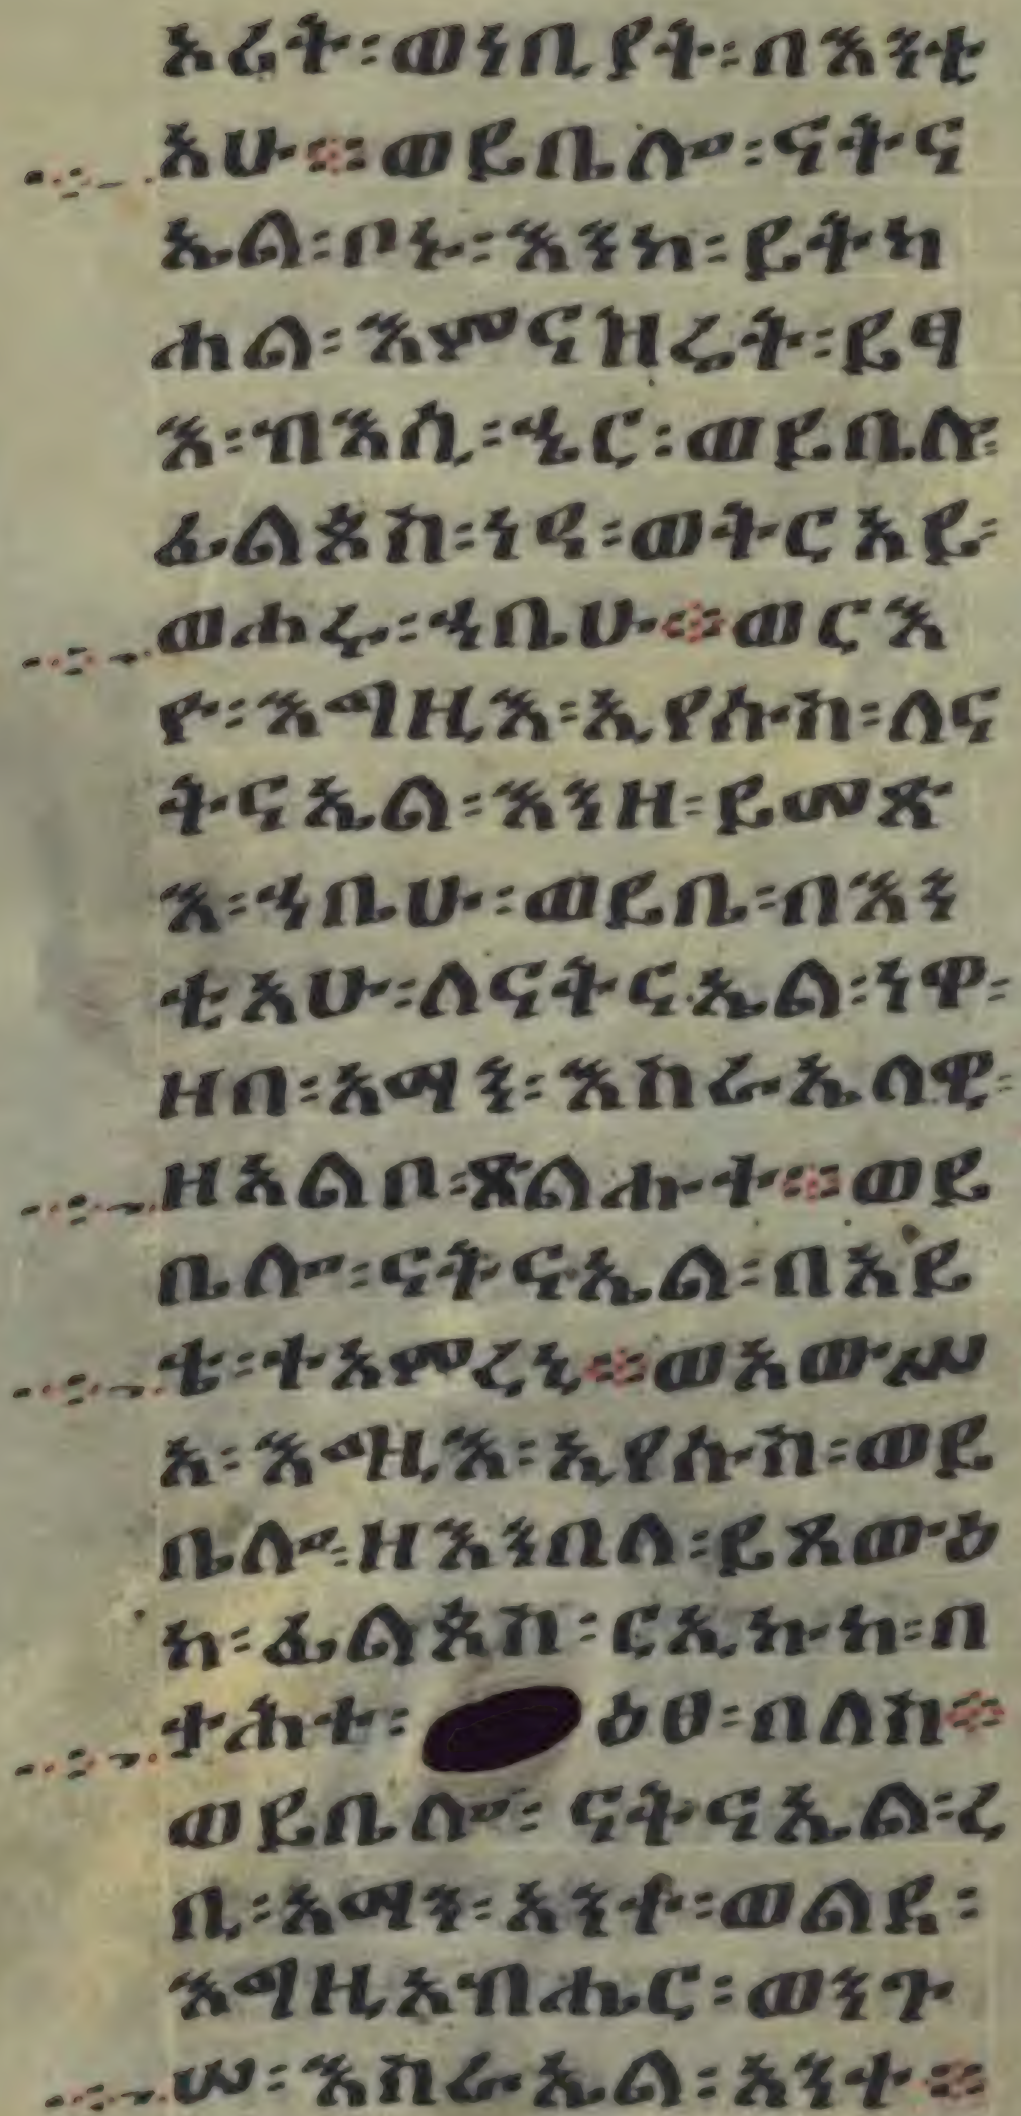 ኦሪት፡ወነቢያት፡በእንቲ
አሁ።ወይቤሎ፡ናትና
ኤል፡ቦኑ፡እንከ፡ይትከ
ሐል፡እምናዝሬት፡ይፃ
እ፡ብእሲ፡ኄር፡ወይቤሎ፡
ፊልጶስ፡ነዓ፡ወትርአይ፡
ወሐሩ፡ኀቤሁ።ወርእ
ዮ፡እግዚእ፡ኢየሱስ፡ለና
ትናኤል፡እንዘ፡ይመጽ
እ፡ኀቤሁ፡ወይቤ፡በእን
ቲአሁ፡ለናትናኤል፡ነዋ፡
ዘበ፡አማን፡እስራኤላዊ፡
ዘአልቦ፡ጽልሑተ።ወይ
ቤሎ፡ናትናኤል፡በአይ
ቴ፡ተአምረኒ።ወአውሥ
አ፡እግዚእ፡ኢየሱስ፡ወይ
ቤሎ፡ዘእንበለ፡ይጸውዕ
ከ፡ፊልጶስ፡ርኢኩከ፡በ
ታሕተ፡ ዕፀ፡በለስ።
ወይቤሎ፡ ናትናኤል፡ረ
ቢ፡አማን፡አንተ፡ወልደ፡
እግዚአብሔር፡ወንጉ
ሠ፡እስራኤል፡አንተ።